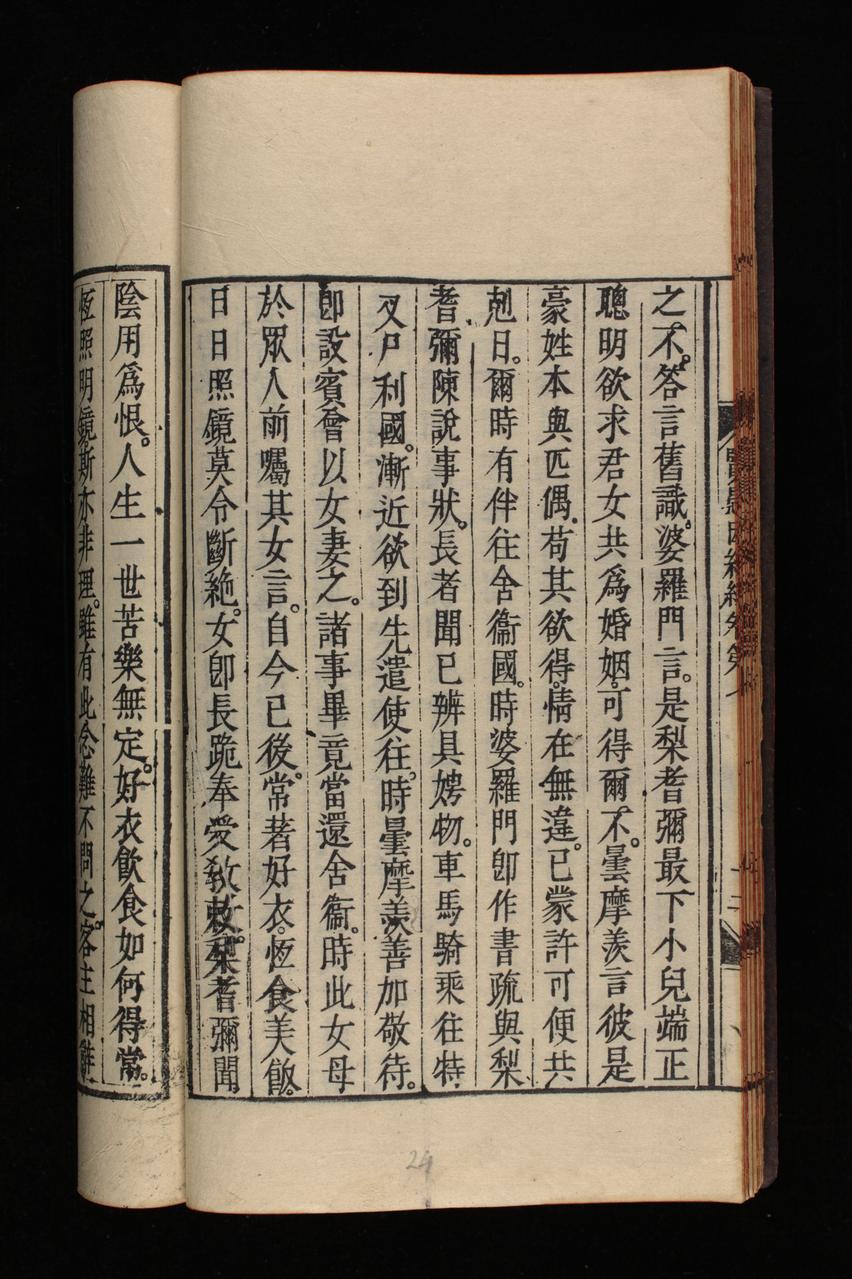 之不。答言舊識。婆羅門言。是梨耆彌最下小兒端正
聰明欲求君女共爲婚姻。可得爾不。曇摩羨言彼是
豪姓本與匹偶。苟其欲得。情在無違。已蒙許可便共
剋日。爾時有伴往舍衞國。時婆羅門卽作書疏與梨
耆彌陳說事狀。長者聞已辨具娉物。車馬騎乘往特
叉尸利國。漸近欲到先遣使往。時曇摩羨善加敬待。
卽設賓會以女妻之。諸事畢竟當還舍衞。時此女母
於眾人前囑其女言。自今已後。常著好衣。恆食美飯。
日日照鏡莫令斷絶。女卽長跪奉愛敎敕。梨耆彌聞
陰用爲恨。人生一世苦樂無定。好衣飮食如何得常。
恆照明鏡。斯亦非理。雖有此念難不問之。客主相
賢愚因緣經卷第
24